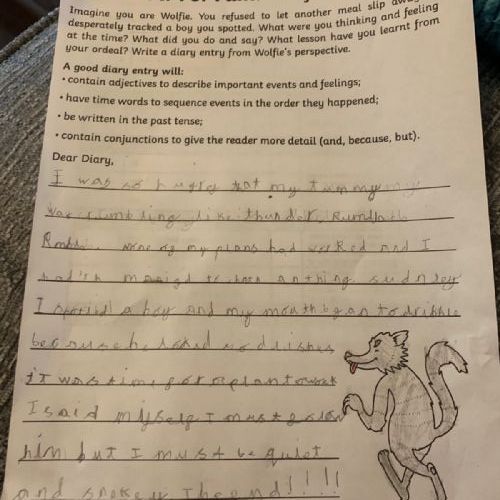 Imagine you are Wolfie. You refused to let another meal slip
desperately tracked a boy you spotted. What were you thinking and feeling
at the time? What did you do and say? What lesson have you learnt from
your ordeal? Write a diary entry from Wolfie's perspective.
A good diary entry will:
• contain adjectives to describe important events and feelings;
• have time words to sequence events in the order they happened;
• be written in the past tense;
• contain conjunctions to give the reader more detail (and, because, but).
Dear Diary,
I was so hugry that my tummy
was rumbling like thunder.
none of my plans had worked and I
an thing sudnley
I spotted a boy and my mouth began to dribble
because he looked so
it was time for a plan to work
I said myself I must
him but I must be quiet
and The end!!!!!